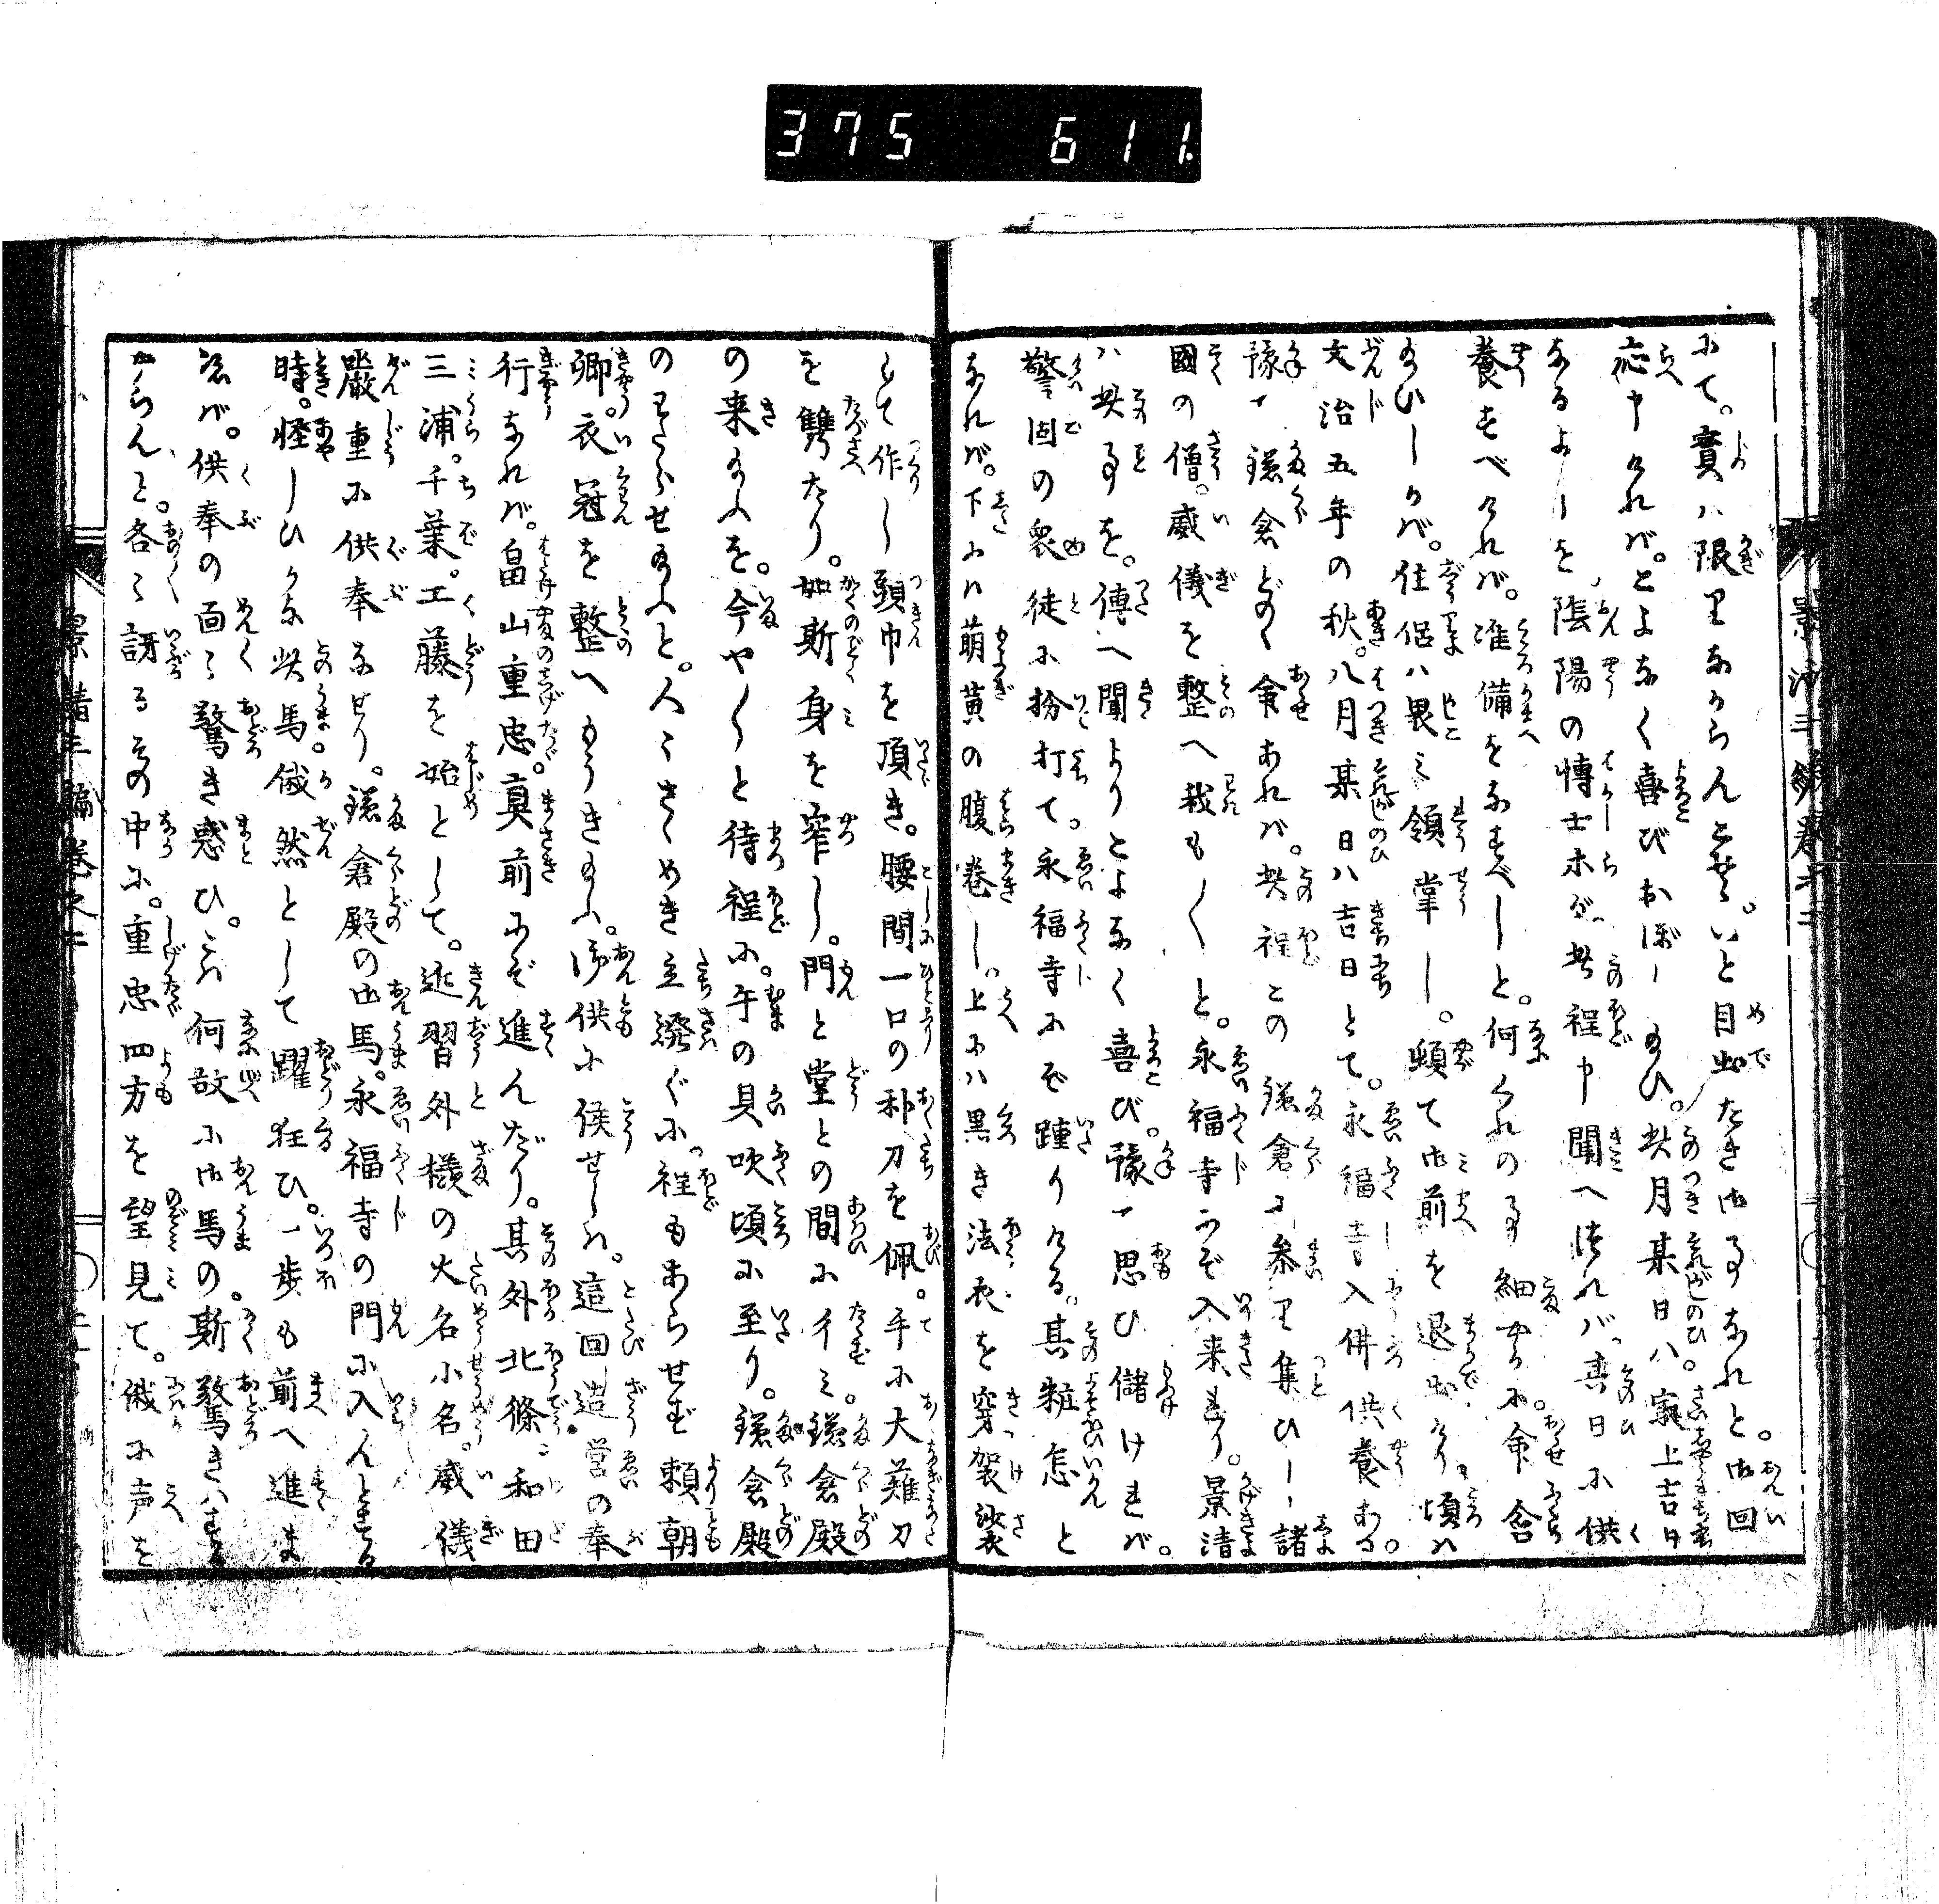 375 611.
みて。實ハ限りあらんこそ。いと目出たき御事なれと。御回
応申ければ。こよなく喜びおぼし給ひ。此月某日ハ。最上吉日
なるよしを、陰陽の博士等が此程申聞へ侍れバ。其日に供
養すべければ。准備をなすべしと。何くれの事細やかに。命令
給ひしかバ。住侶ハ畏ミ領掌し。頓て御前を退出けり。頃ハ
文治五年の秋。八月某日ハ吉日とて。永福寺入佛供養あり。
豫て鎌倉どのゝ命あれバ。此程この鎌倉に参り集ひし諸
國の僧。威儀を整へ我も〳〵と。永福寺にぞ入来けり。景清
ハ此事を。傳へ聞よりこよなく喜び。豫て思ひ儲けしが。
警固の衆徒に扮打て。永福寺にぞ踵りける。其粧怎と
なれバ。下にハ萌黄の腹巻し。上にハ黒き法衣を穿袈裟
もて作し頭巾を頂き。腰間一口の朴刀を佩。手に大薙刀
を雙たり。如斯身を窄し。門と堂との間に彳ミ。鎌倉殿
の来給ふを。今や〳〵と待程に。午の貝吹頃に至り。鎌倉殿
のわたらせ給ふと。人〻さゞめき立騒ぐに。程もあらせず頼朝
卿。衣冠を整へもうき給ふ。御供に候せしハ。這回造営の奉
行なれバ。畠山重忠。真前にぞ進んだり。其外北條。和田
三浦。千葉。工藤を始として。近習外様の大名小名。威儀
嚴重に供奉なせり。鎌倉殿の御馬。永福寺の門に入んとする
時。怪しひかな此馬。俄然として躍狂ひ。一歩も前へ進ま
ねバ。供奉の面〻驚き惑ひ。こハ何故に御馬の。斯驚きハする
やらんと。各〻訝るその中に。重忠四方を望見て。俄に声を
景清三編巻之二